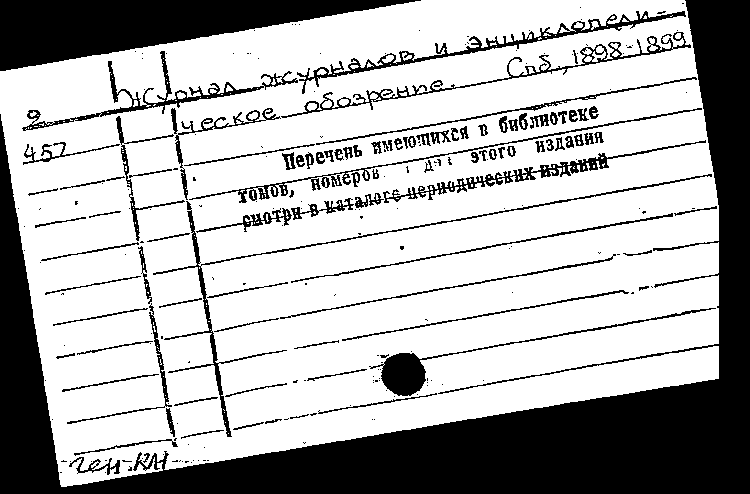 Журнал журналов и энциклопеди-
ческое обозрение. Спб., 1898-1899
9
457
Перечень имеющихся в библиотеке
томов, номеров этого издания
смотри в каталоге периодических изданий
ген.